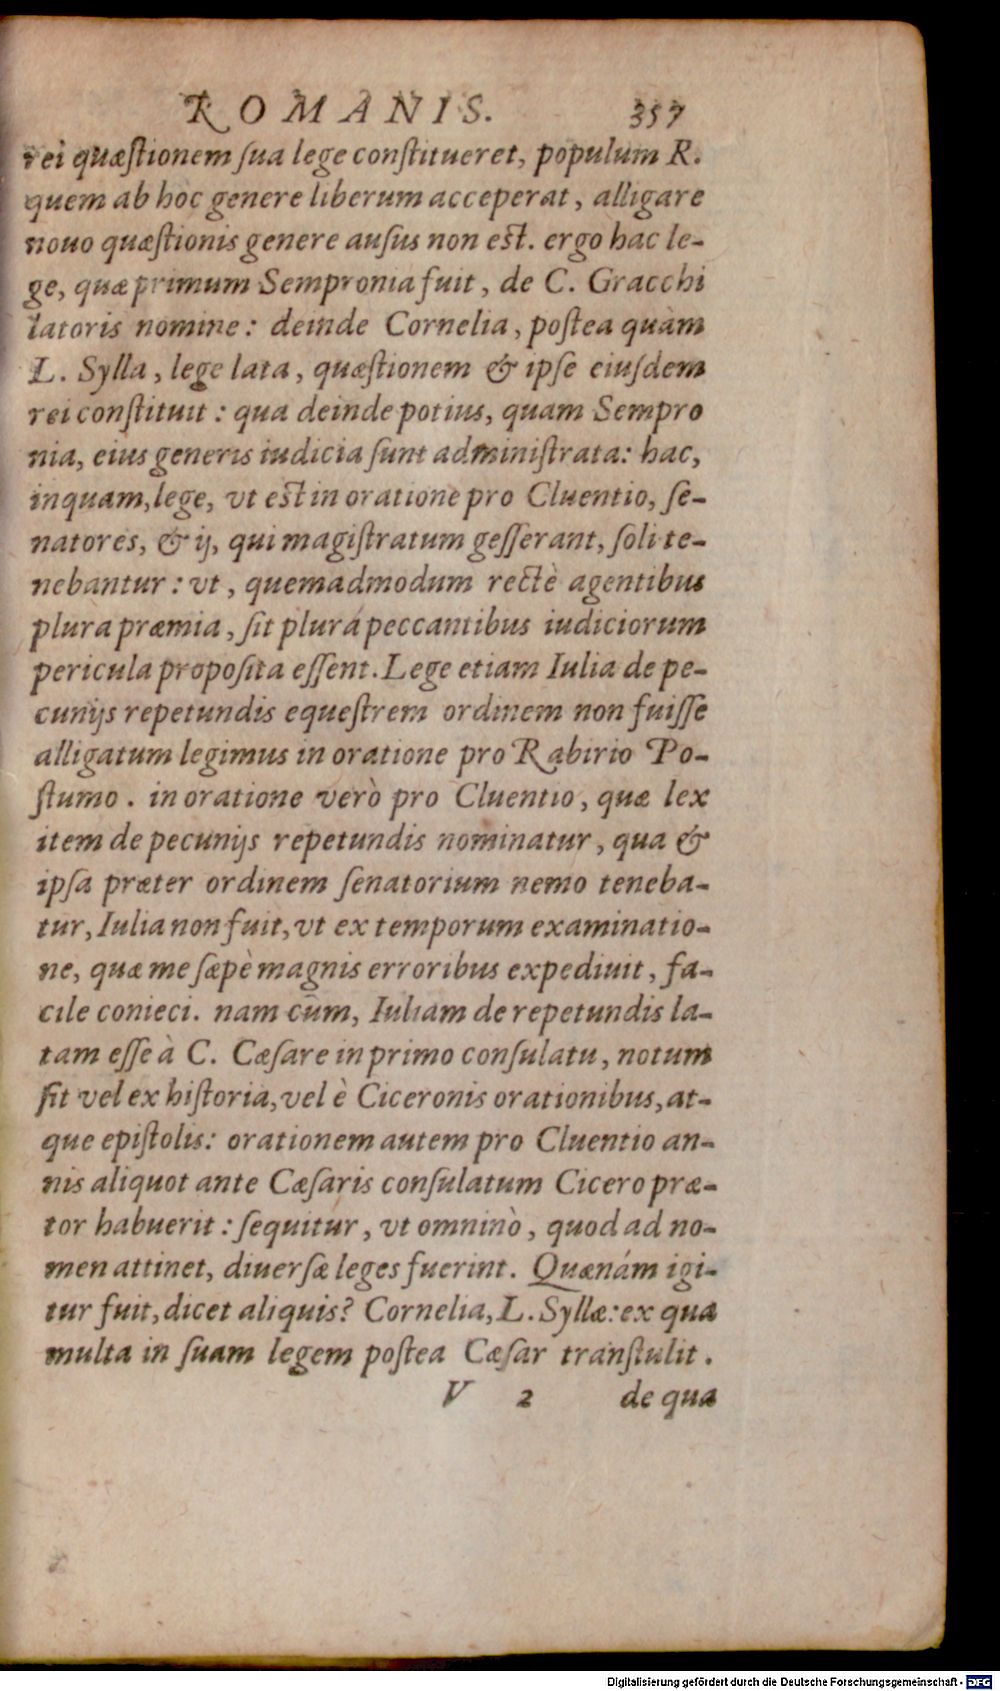 ROMANIS. 357
rei quæſtionem ſua lege conſtitueret, populum R.
quem ab hoc genere liberum acceperat, alligare
nouo quæſtionis genere auſus non eſt. ergo hac le-
ge, quæ primum Sempronia fuit, de C. Gracchi
latoris nomine: deinde Cornelia, poſtea quàm
L. Sylla, lege lata, quæſtionem & ipſe eiuſdem
rei conſtituit: qua deinde potius, quam Sempro
nia, eius generis iudicia ſunt adminiſtrata: hac,
inquam, lege, vt eſt in oratione pro Cluentio, ſe-
natores, & ij, qui magiſtratum geſſerant, ſoli te-
nebantur: vt, quemadmodum rectè agentibus
plura præmia, ſit plurá peccantibus iudiciorum
pericula propoſita eſſent. Lege etiam Iulia de pe-
cunijs repetundis equeſtrem ordinem non fuiſſe
alligatum legimus in oratione pro Rabirio Po-
ſtumo. in oratione verò pro Cluentio, quæ lex
item de pecunijs repetundis nominatur, qua &
ipſa præter ordinem ſenatorium nemo teneba-
tur, Iulia non fuit, vt ex temporum examinatio-
ne, quæ me ſæpè magnis erroribus expediuit, fa-
cile conieci. nam cùm, Iuliam de repetundis la-
tam eſſe à C. Cæſare in primo conſulatu, notum
ſit vel ex hiſtoria, vel è Ciceronis orationibus, at-
que epiſtolis: orationem autem pro Cluentio an-
nis aliquot ante Cæſaris conſulatum Cicero præ-
tor habuerit: ſequitur, vt omninò, quod ad no-
men attinet, diuerſæ leges fuerint. Quænám igi-
tur fuit, dicet aliquis? Cornelia, L. Syllæ: ex qua
multa in ſuam legem poſtea Cæſar tranſtulit.
V 2 de qua
Digitalisierung gefördert durch die Deutsche Forschungsgemeinschaft - DFG